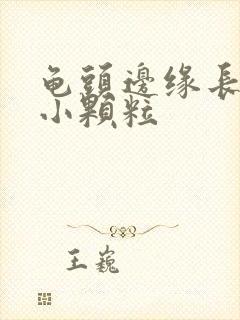 龟頭邊缘長
小顆粒
王巍